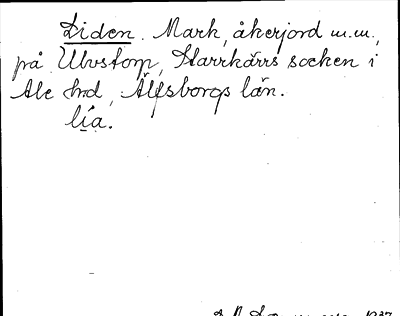 Liden. Mark, åkerjord m.m.,
på Ulvstorp, Starrkärrs socken i
Ale hrd, Älfsborgs län.
lia.
1937